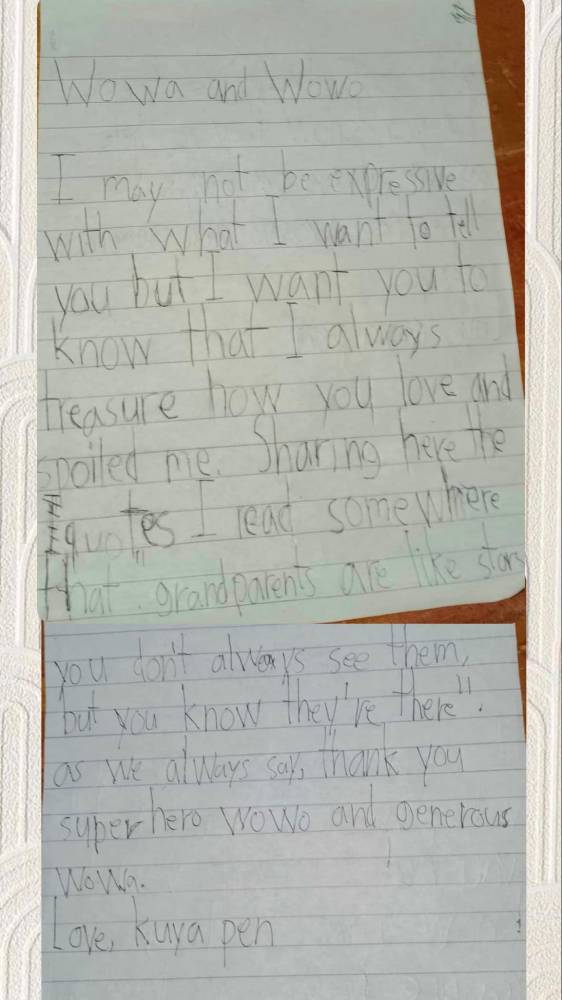 Wowa and Wowo
I may not be expressive
with what I want to tell
you but I want you to
know that I always
treasure how you love and
spoiled me. Sharing here the
quotes I read somewhere
that "grandparents are like stars
you don't always see them,
but you know they're there".
as we always say, thank you
superhero wowo and generous
wowa.
Love, kuya pen